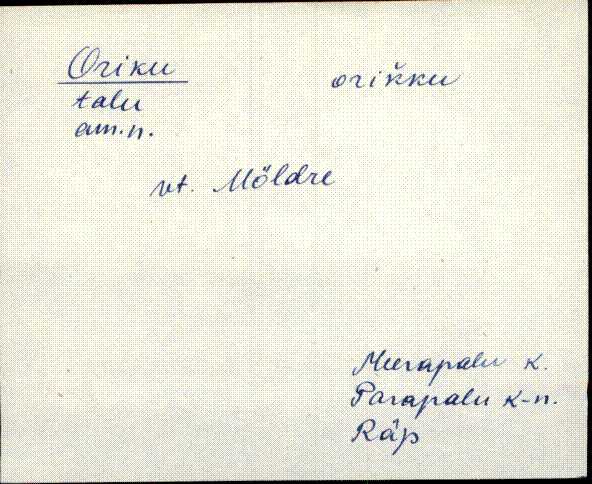 Oriku
orik̆ku
talu
am.n.
vt. Möldre
Meerapalu k.
Parapalu k-n.
Räp